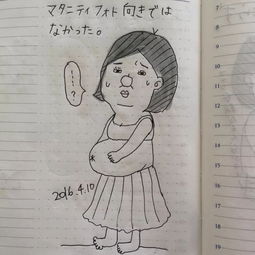 マタニティフォト向きでは
なかった。
……?
2016.4.10
7
8
9
10
11
12
13
14
15
16
17
18
19